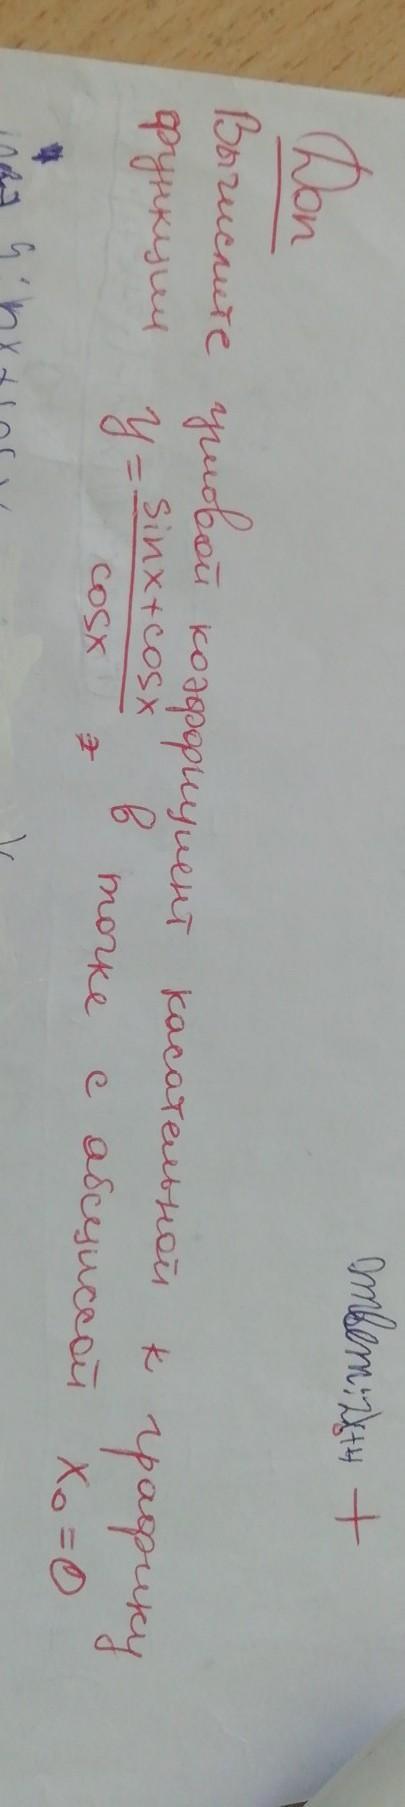 Ответ: 2x+4 +
Доп
Вычислите угловой коэффициент касательной к графику
функции y = sinx+cosx / cosx в точке с абсциссой x₀ = 0
sinx+cosx